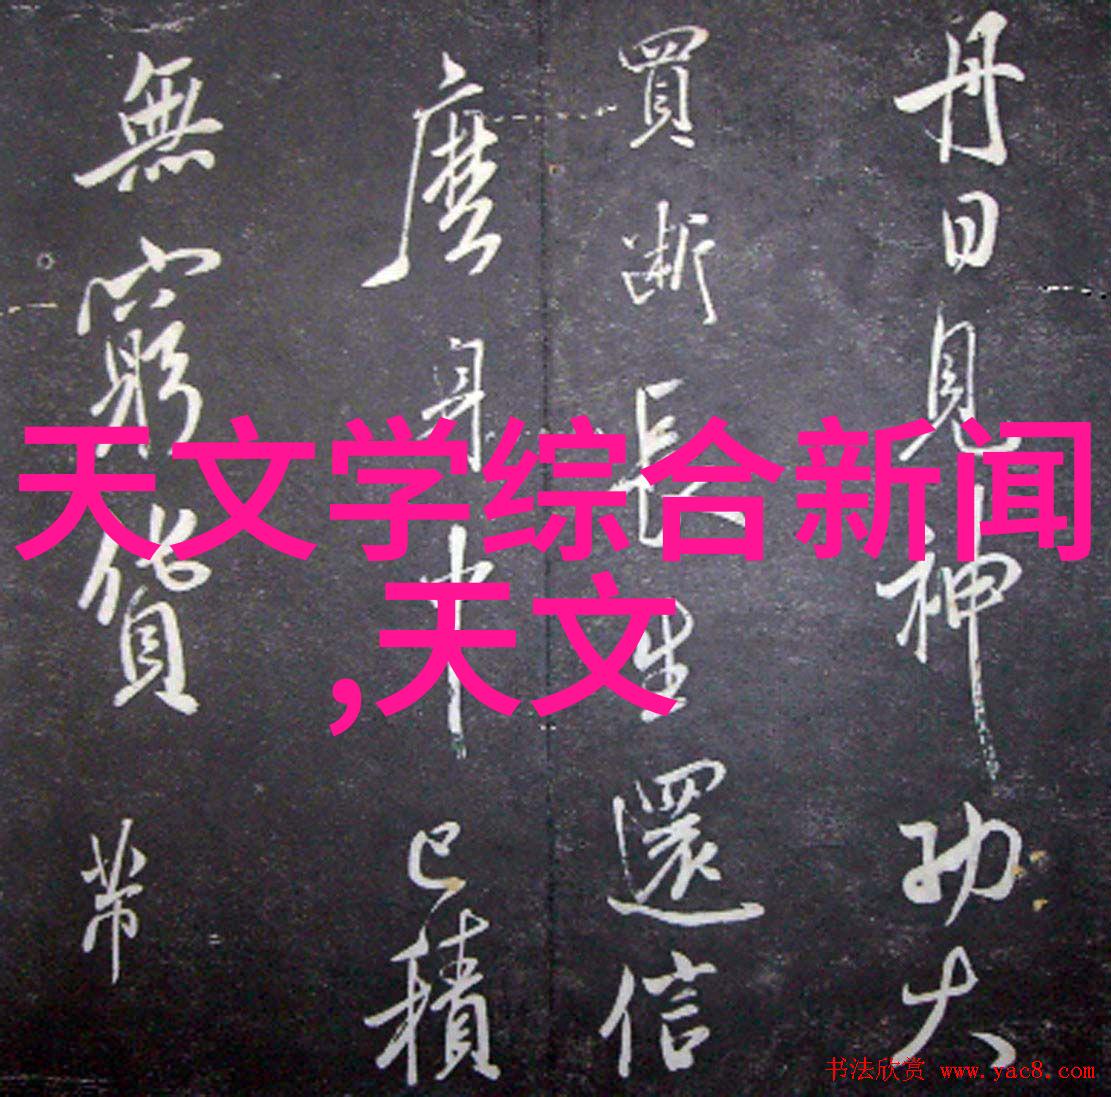 丹日見神功大
買斷長生還信
麼身中已積
無窮貨帶
天文学综合新闻
,天文
书法欣赏 www.yac8.com